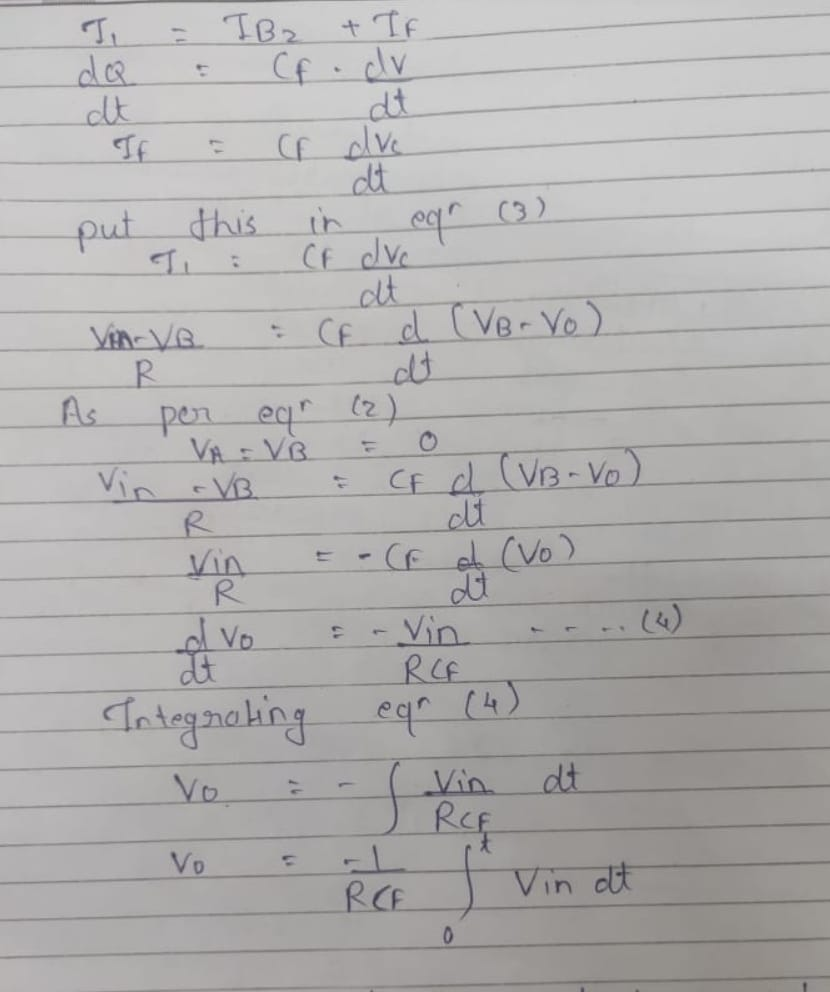 I₁ = IB₂ + If
dQ/dt = Cf . dv/dt
If = Cf dVc/dt
put this in eqn (3)
I₁ = CF dVc/dt
Vin-VB/R = CF d/dt (VB-VO)
As per eqn (2)
VA = VB = 0
Vin - VB/R = CF d/dt (VB-VO)
Vin/R = - CF d/dt (VO)
d/dt VO = - Vin/RCF - - - .. (4)
Integrating eqn (4)
VO = - ∫ Vin/RCF dt
VO = -1/RCF ∫₀ᵗ Vin dt